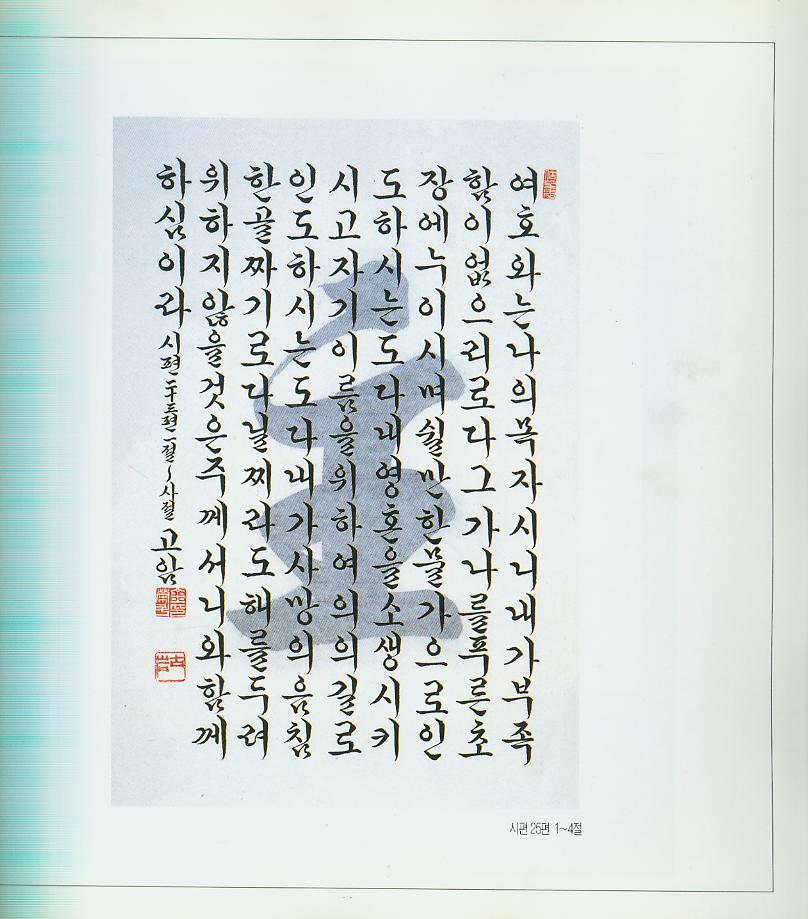 여호와는나의목자시니내가부족
함이없으리로다그가나를푸른초
장에누이시며쉴만한물가으로인
도하시는도다내영혼을소생시키
시고자기이름을위하여의의길로
인도하시는도다내가사망의음침
한골짜기로다닐찌라도해를두려
위하지않을것은주께서니와함께
하심이라 시편二十三편一절~사절 고암
시편 25편 1~4절